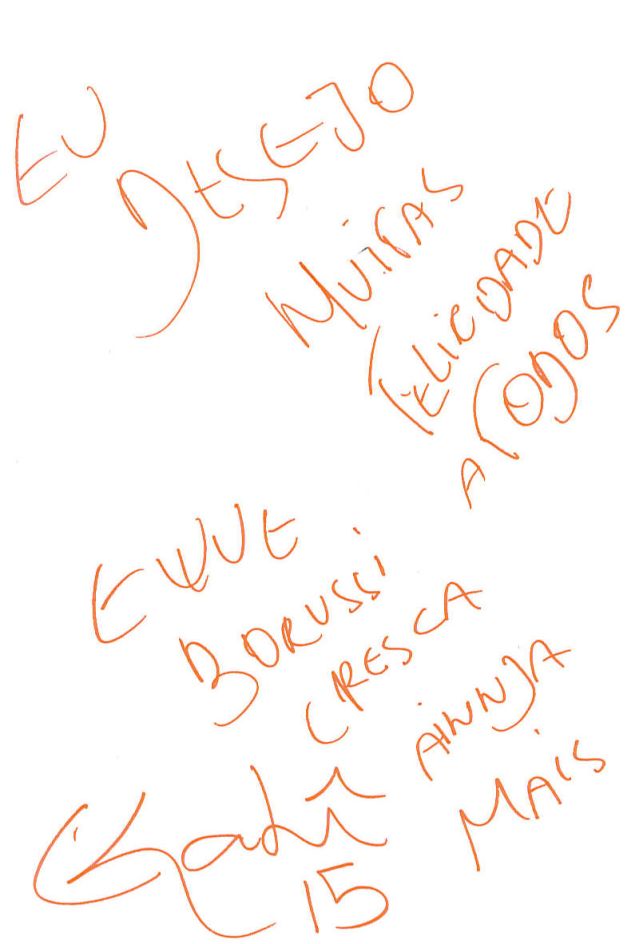 EU
DESEJO
MUITAS
FELICIDADE
A TODOS
E QUE
BORUSSI
CRESCA
AINNJA
MAIS
15